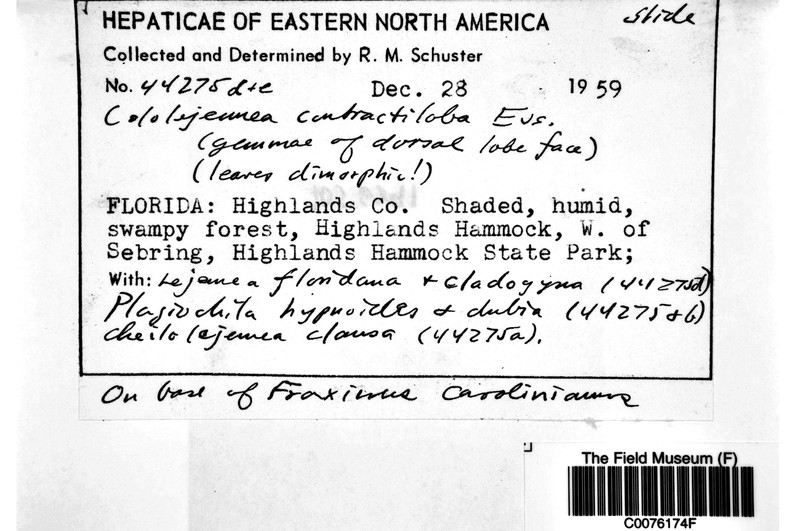 slide
HEPATICAE OF EASTERN NORTH AMERICA
Collected and Determined by R. M. Schuster
No. 44275d+e Dec. 28 1959
Cololejeunea contractiloba Evs.
(gemmae of dorsal lobe face)
(leaves dimorphic!)
FLORIDA: Highlands Co. Shaded, humid,
swampy forest, Highlands Hammock, W. of
Sebring, Highlands Hammock State Park;
With: Lejeunea floridana + cladogyna (44275d)
Plagiochila hypnoides + dubia (44275+b)
Cheilolejeunea clausa (44275a).
On base of Fraxinus carolinianus
The Field Museum (F)
C0076174F